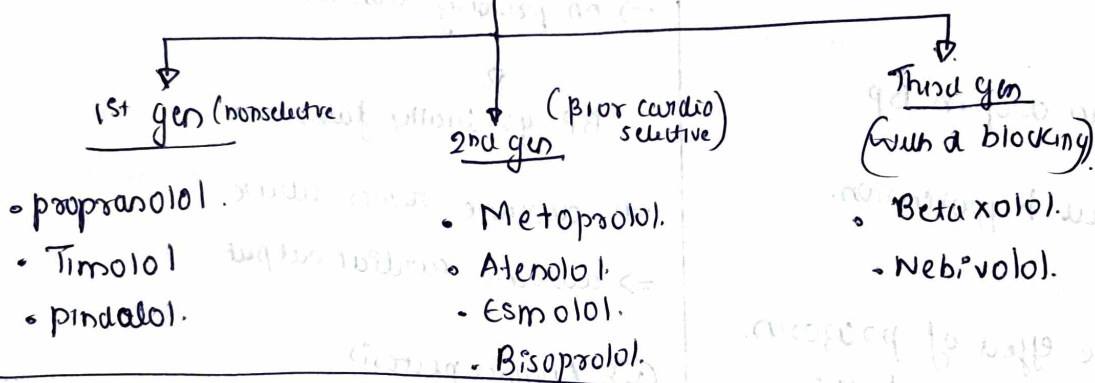 1st gen (nonselective
• propranolol.
• Timolol
• pindalol.
(β1 or cardio
selective)
2nd gen
• Metoprolol.
• Atenolol.
• Esmolol.
• Bisoprolol.
Third gen
(with α blocking)
• Betaxolol.
• Nebivolol.